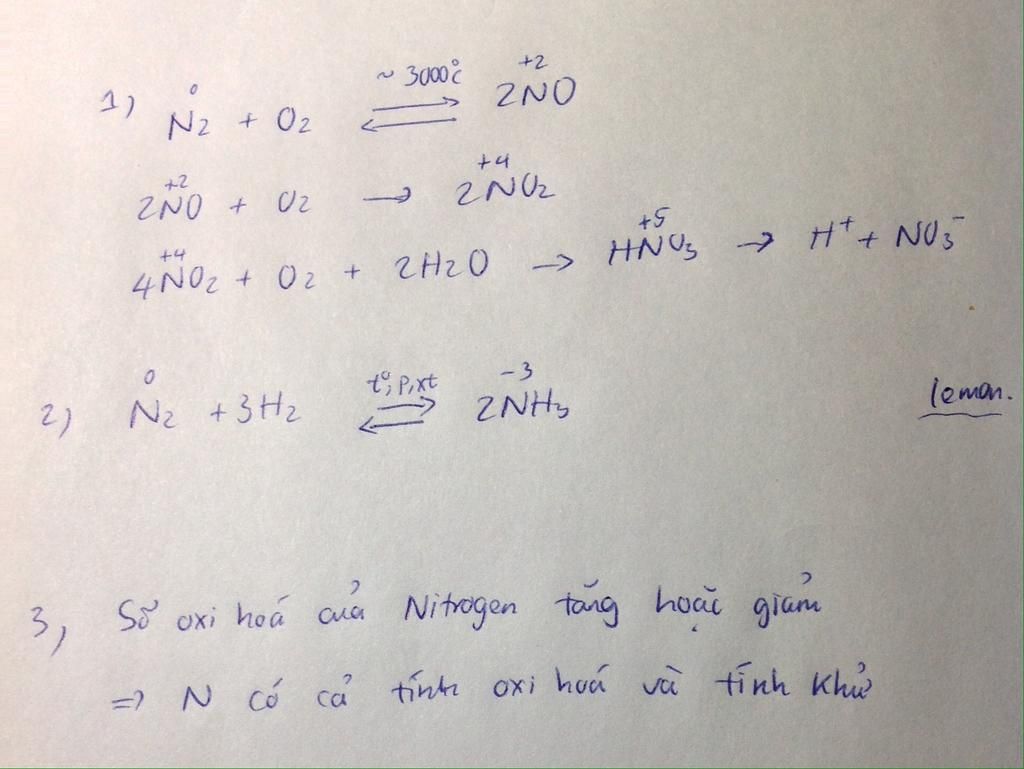 1) N₂ (0) + O₂ ⇌ (~ 3000°C) 2NO (+2)
2NO (+2) + O₂ → 2NO₂ (+4)
4NO₂ (+4) + O₂ + 2H₂O → HNO₃ (+5) → H⁺ + NO₃⁻
2) N₂ (0) + 3H₂ ⇌ (t°, p, xt) 2NH₃ (-3)
leman.
3, Số oxi hoá của Nitrogen tăng hoặc giảm
=> N có cả tính oxi hoá và tính khử